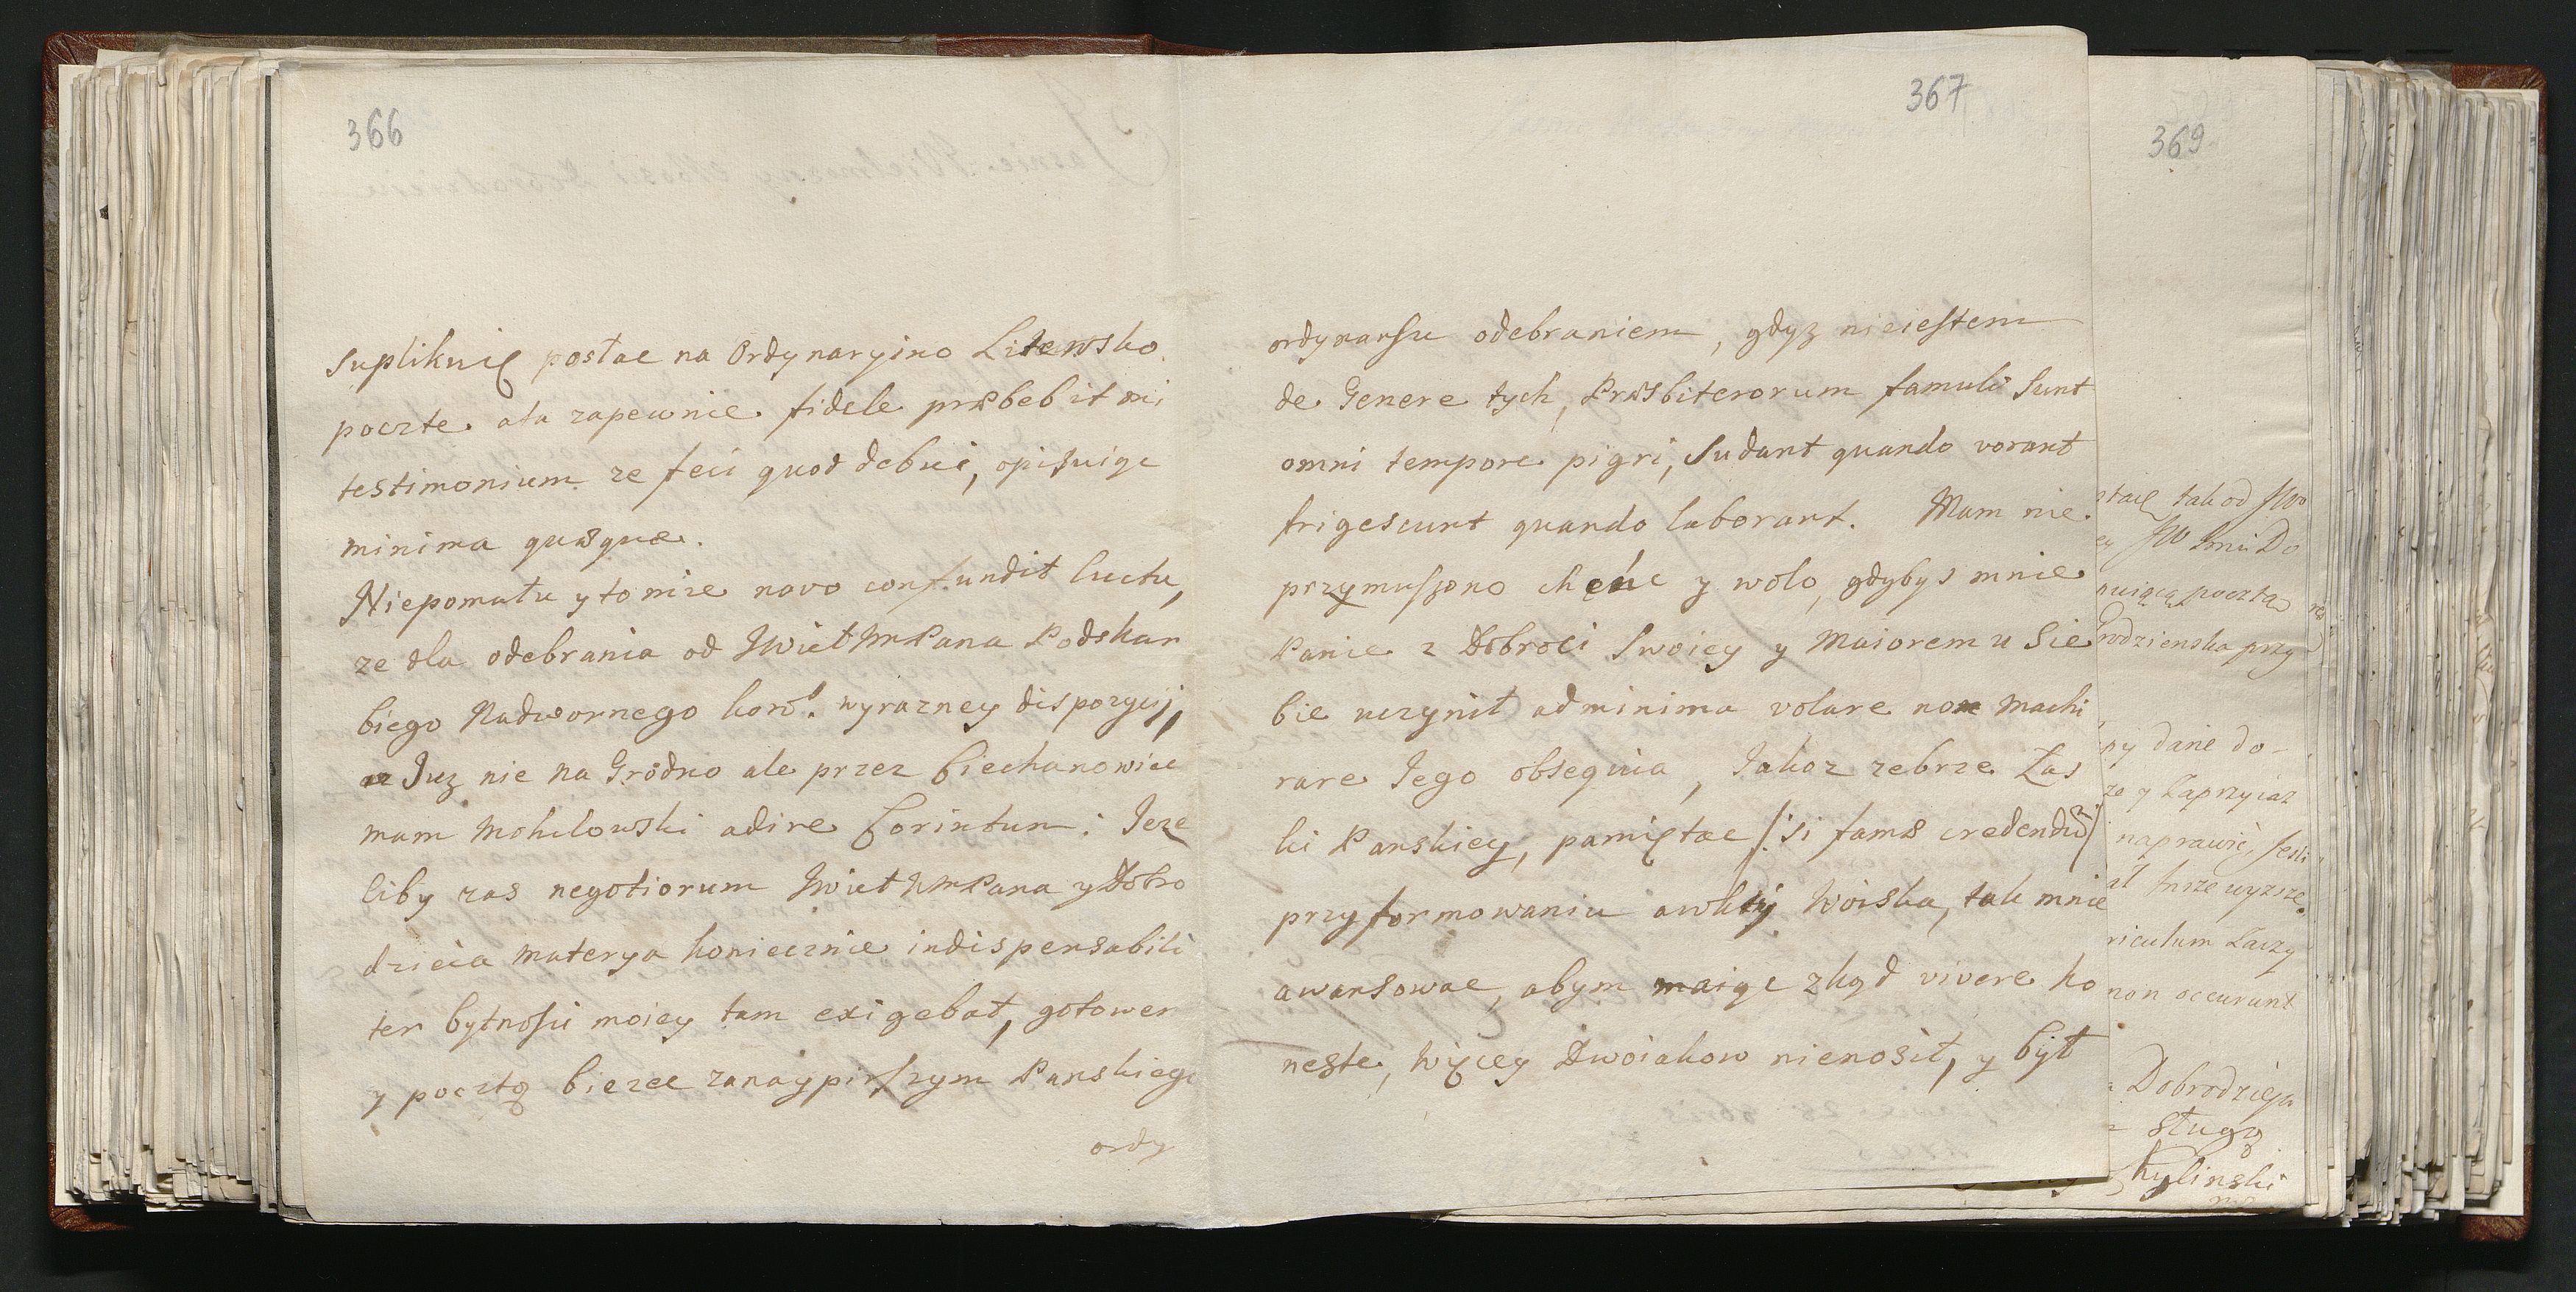 366
Suplikuię posłac na Ordynaryino Litewsko
poczte. ata zapewnie fidele præbebit mi
testimonium ze feci quod debui, opisuigc
minima quæque.
Niepomału y to mie novo confundit luctu,
ze dla odebrania od JWiel Mr Pana Podskar
biego Nadwornego kor. wyrazney dispozycij,
Juz nie na Grodno ale przez Ciechanowice
mam Mohilowski adire Corintum: Jeze
liby zas negotiorum JWiel WMPana y Dobro
dzieia materya koniecznie indispensabili
ter bytnosci moiey tam exigebat, gotowem
y pocztą biezec zanaypirszym Panskiego
ordy
367
ordynansu odebraniem, gdyz nieiestem
de Genere tych, Præsbiterorum famuli sunt
omni tempore pigri, Sudant quando vorant
frigescunt quando laborant. Mam nie
przymuszono chęnc y wolo, gdybys mnie
Panie z Dobroci Swoiey y Maiorem u Sie
bie uczynił ad minima volare non machi
rare Jego obsequia, Jakoz zebrze Łas
ki Panskiey, pamiętac /: si famæ credendū /
przy formowaniu awktÿ Woiska, tak mnie
awansowac, abym maigc zkąd vivere ho
neste, więcy Dwoiakow nienosił, y był
369
tak od JWo
JW Imci Do
nuiącą poczta
rodzienska przy
ny dane do-
ze y Zaprzyiaz
naprawić, Jesli
Insze wyzsze.
riculum Łaczy
non occurunt
Dobrodzieja
sługą
Kylinski